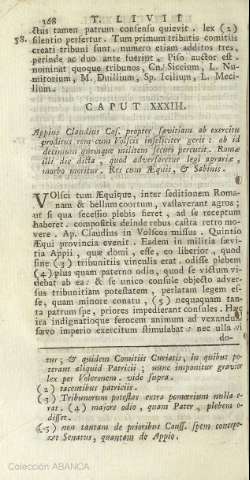 268 T. LIVII
ctus tamen patrum consensu quievit. lex (2)
58. silentio perfertur. Tum primum tributis comitiis
creati tribuni sunt. numero etiam additos tres,
perinde ac duo ante fuerint, Piso auctor est.
nominat quoque tribunos, Cn. Siccium, L. Nu-
mitorium, M. Duillium, Sp. Icilium, L. Meci-
lium.
CAPUT XXXIII.
Appius Claudius Cos. propter sævitiam ab exercitu
proditus rem cum Volscis infeliciter gerit: ob id
decimum quemque militem securi percutit. Romæ
illi die dicta, quod adversaretur legi agrariæ,
morbo moritur. Res cum Æquis, & Sabinis.
VOlsci tum Æquique, inter seditionem Roma-
nam & bellum coortum, vastaverant agros;
ut si qua secessio plebis fieret, ad se receptum
haberet: compositis deinde rebus castra retro mo-
vere. Ap. Claudius in Volscos missus. Quintio
Æqui provincia evenit. Eadem in militia sævi-
tia Appii, quæ domi, esse, eo liberior, quod
sine (3) tribunitiis vinculis erat. odisse plebem
(4) plus quam paterno odio, quod se victum vi-
debat ab ea: & se unico consule objecto adver-
sus tribunitiam potestatem, perlatam legem es-
se, quam minore conatu, (5) nequaquam tan-
ta patrum spe, priores impedierant consules. Hæc
ira indignatioque ferocem animum ad vexandum
sævo imperio exercitum stimulabat: nec ulla vi
do-
tur; & quidem Comitiis Curiatis, in quibus po-
terant aliquid Patricii; nunc imponitur gravior
lex per Voleronem. vide supra.
(2) tacentibus patriciis.
(3) Tribunorum potestas extra pomœrium nulla e-
rat. (4) majore odio, quam Pater, plebem o-
disset.
(5) non tantam de prioribus Coss. spem concepe-
rat Senatus, quantam de Appio.
Colección ABANCA